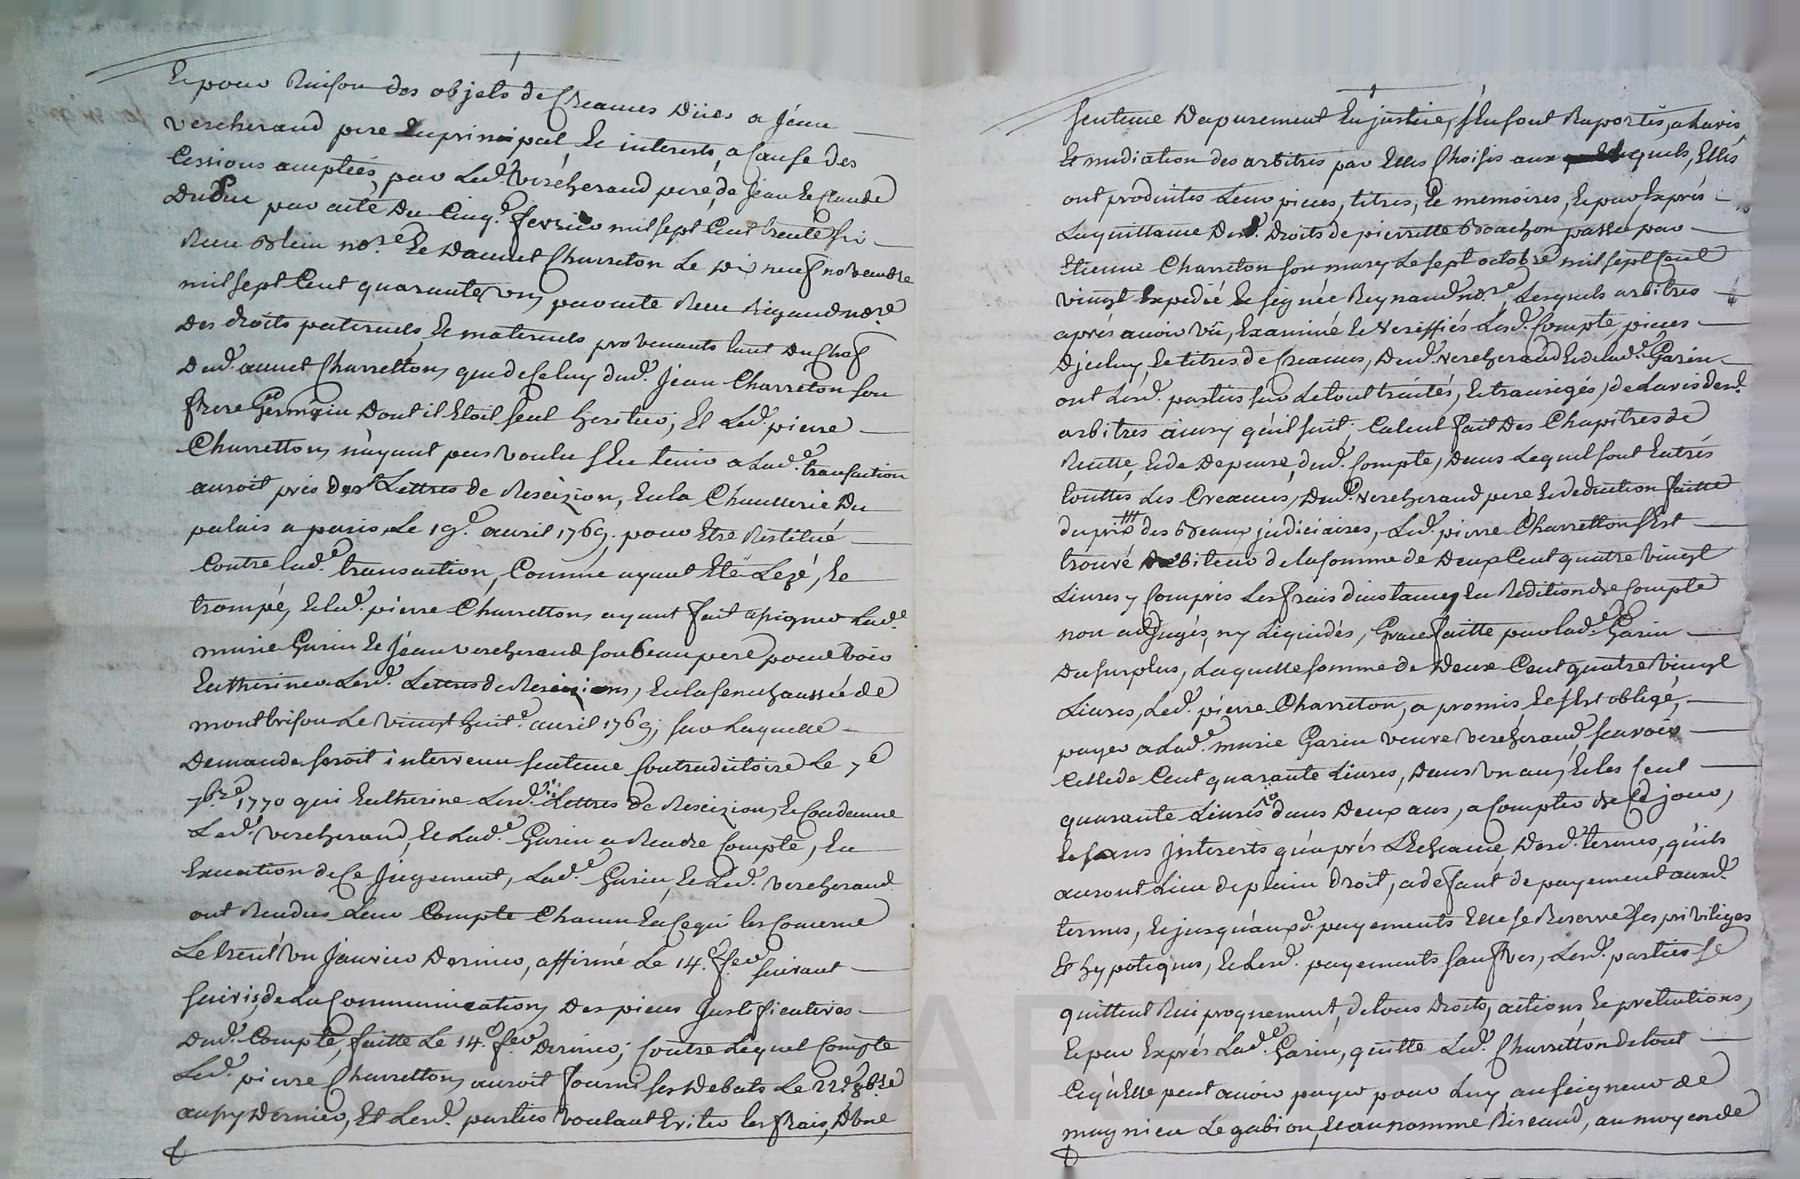 Et pour Raison des objets de Creances Dües a Jean
vercherand pere En principal Et interests, a Cause des
Cessions aceptées par Led.t Vercherand pere, de Jean Et Claude
par acte Du Cinq.e fevrier mil sept Cent trente six
Receu not.re Et Dannet Charreton Le Dix neuf novembre
mil sept Cent quarante un, par acte Receu Rigaud not.re
Des droits paternels, Et maternels provenants tant Du Chef
Dud. annet Charretton, que de Celuy dud. Jean Charreton son
frere Germain Dont il Etoit seul heritier, Et Led. pierre
Charretton n'ayant pas voulu s'En tenir a Lad.e transaction
auroit pris des Lettres de Rescizion, En la Chancellerie Du
palais a paris Le 19.e avril 1769. pour Etre Restitué
Contre lad.e transaction, Comme ayant Eté Lezé, Et
trompé, Et led. pierre Charretton ayant fait assigner Lad.e
marie Garin Et Jean vercherand son beau pere pour voir
Entheriner Lesd. Lettres de Rescizion, En la senechaussée de
montbrison Le vingt huit.e avril 1769, sur Laquelle
Demande seroit intervenu sentence Contradictoire Le 7.e
7bre 1770 qui Entherine Lesd. Lettres de Rescizion, Et Condemne
Led. vercherand, Et Lad.e Garin a Rendre Compte, En
Execution de Ce Jugement, Lad.e Garin, Et Led. vercherand
ont Rendus Leur Compte Chacun En Ce qui les Concerne
Le trent'un Janvier Dernier, affirmé Le 14.e fev.r suivant
suivis de La Communication Des pieces Justificatives
Dud. Compte, faitte Le 14.e fev.r Dernier, Contre Lequel Compte
Led. pierre Charretton auroit fourni ses Debats Le 22.e
aussy Dernier, Et Lesd. parties voulant Eviter les frais, D'une
sentence Dapurement En justice, s'En sont Raportés, a Lavis
Et mediation des arbitres par Elles Choisis aux quels, Elles
ont produites Leur pieces, titres, Et memoires, Et par Exprés
La quittance Desd. Droits de pierrette Brachon passée par
Etienne Charreton son mary Le sept octobre mil sept Cent
vingt Expedié Et signée Reynaud no.re, Lesquels arbitres
aprés avoir vü, Examiné Et Vereffiés Lesd. Compte, pieces
D'jceluy Et titres de Creances, Dud. vercherand Et de Lad.e Garin
ont Lesd. parties sur Le tout traités, Et transigés, de Lavis desd.
arbitres ainsy qu'il suit; Calcul fait Des Chapitres de
Recette, Et de Depense, dud. Compte, Dans Lequel sont Entrés
touttes Les Creances, Dud. vercherand pere Et deduction faitte
du prix des Beaux judiciaires, Led. pierre Charretton s'Est
trouvé Debiteur de la somme de Deux Cent quatre vingt
Livres y Compris Les frais d'instance, En Reddition de Compte
non adjugés, ny Liquidés, Grace faitte par lad.e Garin
Du surplus, Laquelle somme de Deux Cent quatre vingt
Livres, Led. pierre Charreton, a promis Et s'Est obligé,
payer a Lad.e marie Garin veuve vercherand, scavoir
Celle de Cent quarante Livres, Dans un an, Et les Cent
quarante Livres dans Deux ans, a Compter de Ce jour,
Et sans Jnterests qu'aprés L'Echeance Desd. termes, qu'ils
auront Lieu de plain Droit, a defaut de payement auxd.
termes, Et jusqu'auxd. payements Elle se Reserve ses privileges
Et hypoteques, Et Lesd. payements sauf Res, Lesd. parties se
quittent Reciproquement, de tous Droits, actions Et pretentions,
Et par Exprés Lad.e Garin, quitte Led. Charretton De tout
Ce qu'elle peut avoir payer pour Luy au seigneur de
magnieu Le gabion, Et au nommé Riveaud, au moyen de